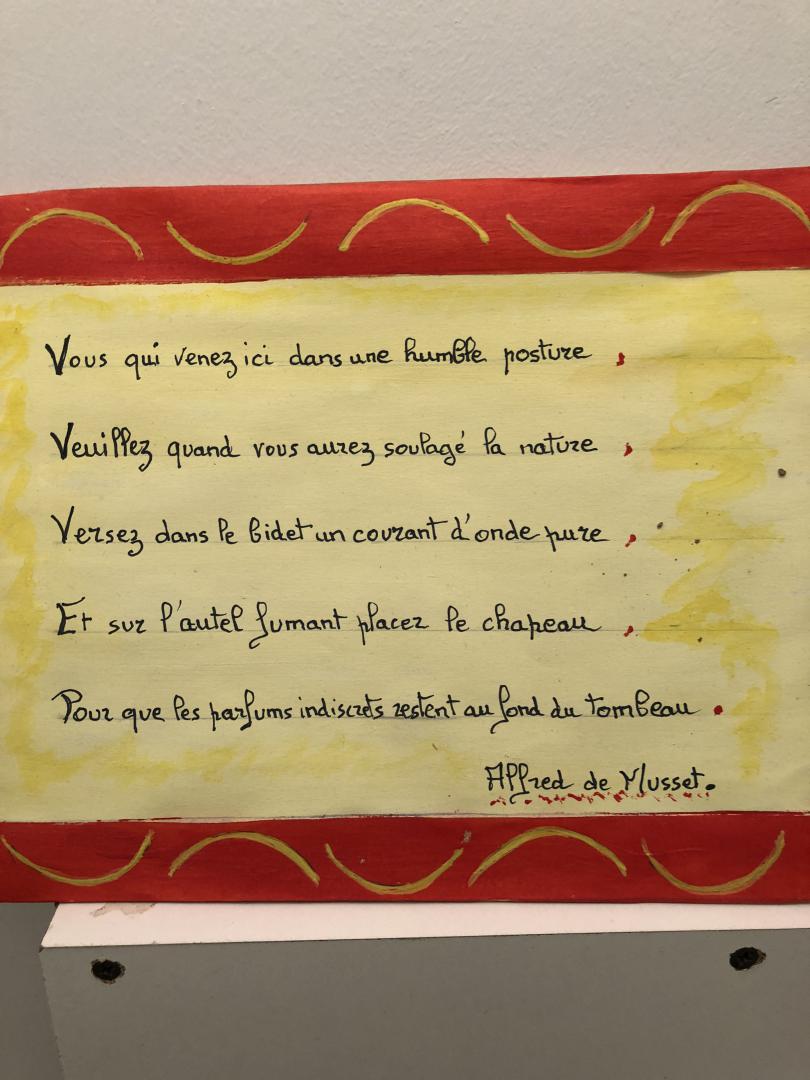 Vous qui venez ici dans une humble posture ,
Veuillez quand vous aurez soulagé la nature ,
Versez dans le bidet un courant d'onde pure ,
Et sur l'autel fumant placez le chapeau ,
Pour que les parfums indiscrets restent au fond du tombeau .
Alfred de Musset.